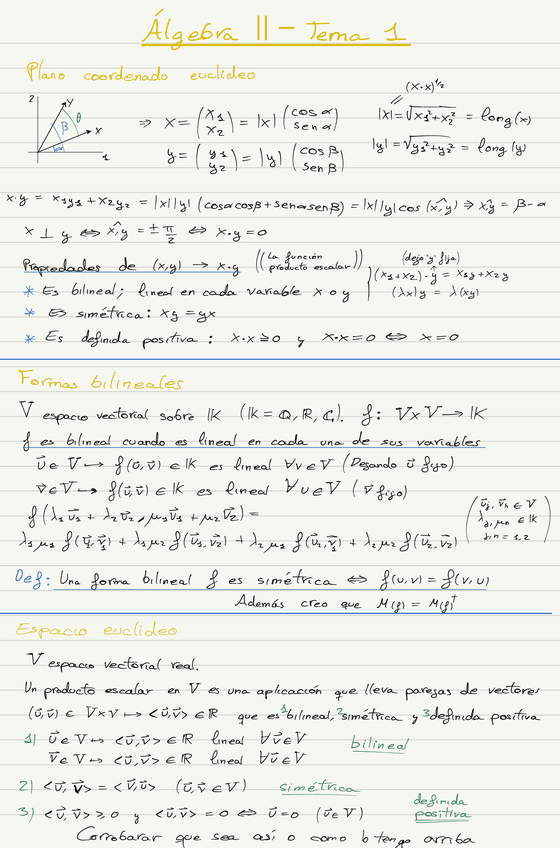 Álgebra II - Tema 1
Plano coordenado euclídeo
2 y θ β x α 1
⇒ x = (x₁ x₂) = |x| (cos α sen α)
y = (y₁ y₂) = |y| (cos β sen β)
(x·x)^1/2
|x| = √x₁²+x₂² = long(x)
|y| = √y₁²+y₂² = long(y)
x·y = x₁y₁ + x₂y₂ = |x||y| (cosαcosβ + senαsenβ) = |x||y| cos (x̂,y) ⇒ x̂,y = β - α
x ⊥ y ⇔ x̂,y = ± π/2 ⇔ x·y = 0
Propiedades de (x,y) → x·y ((La función producto escalar))
(dejo 'y' fija)
(x₁+x₂)·y = x₁y + x₂y
(λx)y = λ(xy)
* Es bilineal; lineal en cada variable x o y
* Es simétrica: xy = yx
* Es definida positiva: x·x ≥ 0 y x·x = 0 ⇔ x = 0
Formas bilineales
V espacio vectorial sobre K (K = Q, R, C). f: V×V → K
f es bilineal cuando es lineal en cada una de sus variables
ū ∈ V → f(ū,v̄) ∈ K es lineal ∀v ∈ V (Dejando ū fijo)
v̄ ∈ V → f(ū,v̄) ∈ K es lineal ∀u ∈ V (v̄ fijo)
f(λ₁ū₁ + λ₂ū₂, μ₁v̄₁ + μ₂v̄₂) =
λ₁μ₁ f(ū₁,v̄₁) + λ₁μ₂ f(ū₁,v̄₂) + λ₂μ₁ f(ū₂,v̄₁) + λ₂μ₂ f(ū₂,v̄₂)
(ūⱼ, v̄ₙ ∈ V
λⱼ, μₙ ∈ K
j,n = 1,2)
Def: Una forma bilineal f es simétrica ⇔ f(u,v) = f(v,u)
Además creo que M(f) = M(f)ᵗ
Espacio euclídeo
V espacio vectorial real.
Un producto escalar en V es una aplicación que lleva parejas de vectores
(ū,v̄) ∈ V×V ↦ <ū,v̄> ∈ R que es ¹bilineal, ²simétrica y ³definida positiva
1) ū ∈ V ↦ <ū,v̄> ∈ R lineal ∀v̄ ∈ V
v̄ ∈ V ↦ <ū,v̄> ∈ R lineal ∀ū ∈ V
bilineal
2) <ū,v̄> = <v̄,ū> (ū,v̄ ∈ V) simétrica
3) <ū,v̄> ≥ 0 y <ū,v̄> = 0 ⇔ ū = 0 (ū ∈ V)
definida
positiva
Corroborar que sea así o como lo tengo arriba